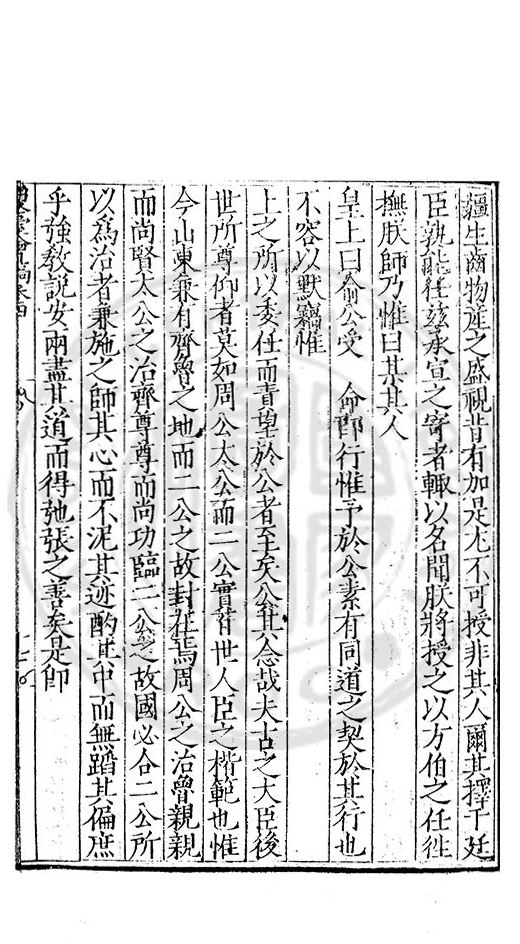 疆生齒物產之盛視昔有加是尤不可授非其人爾其擇于廷
臣孰能任玆承宣之寄者輙以名聞朕將授之以方伯之任徃
撫朕師乃惟曰某其人
皇上曰俞公受　命即行惟予於公素有同道之契於其行也
不容以默竊惟
上之所以委任而責望於公者至矣公其念哉夫古之大臣後
世所尊仰者莫如周公太公而二公實昔世人臣之楷範也惟
今山東兼有齊魯之地而二公之故封在焉周公之治魯親親
而尚賢太公之治齊尊尊而尚功臨二公之故國必合二公所
以爲治者兼施之師其心而不泥其迹酌其中而無蹈其偏庶
乎強教説安兩盡其道而得弛張之善矣是即